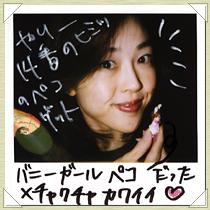 やりー
14番のヒミツ
のペコ
ゲット
いこここ
バニーガール ペコ だった
メチャクチャ カワイイ♡